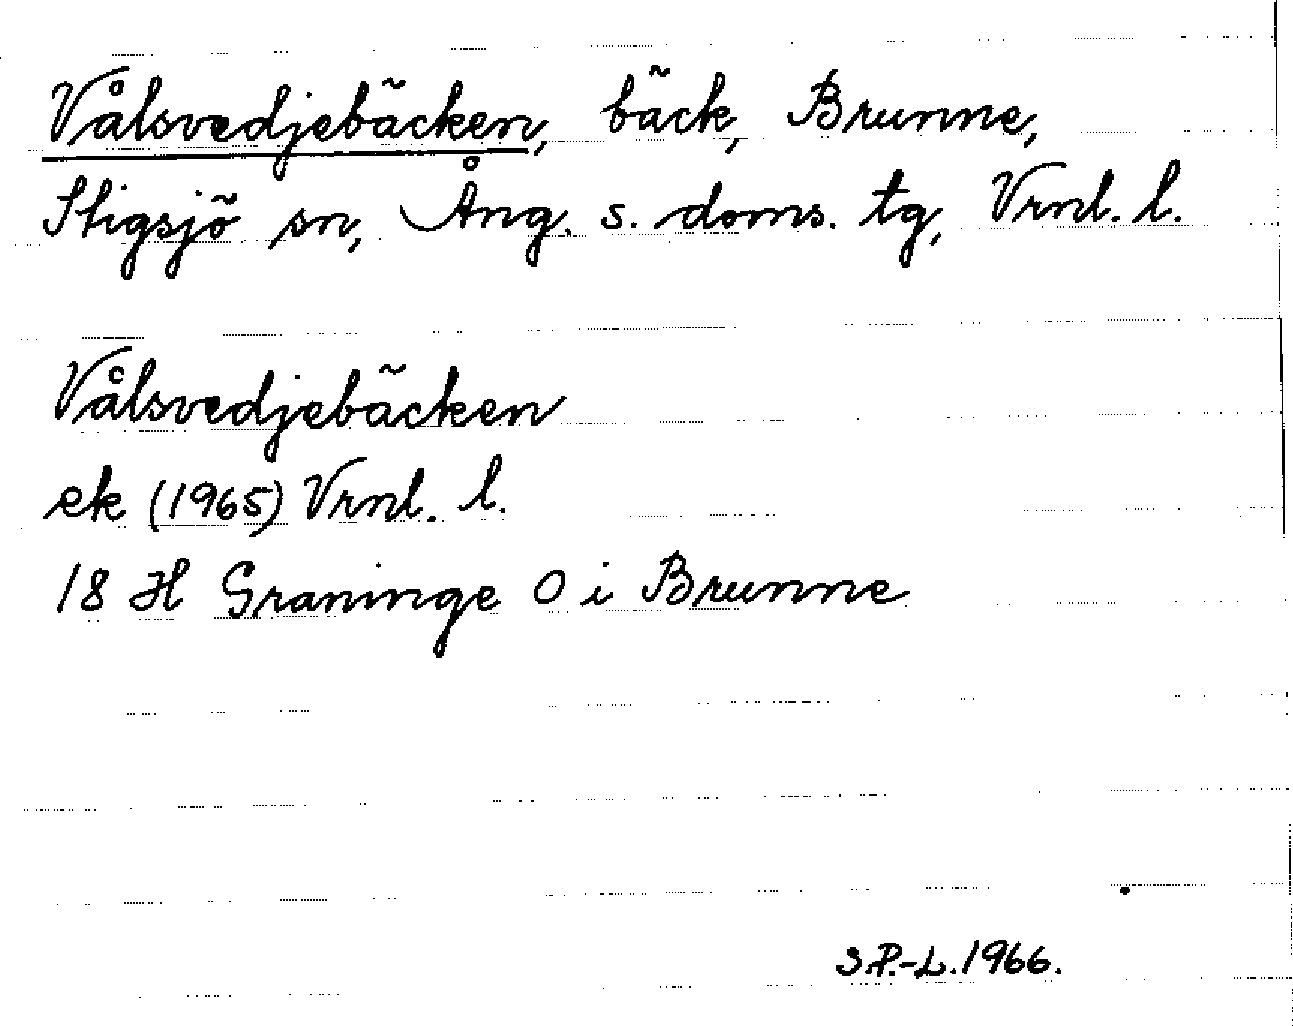 Vålsvedjebäcken, bäck, Brunne,
Stigsjö sn, Ång. s. doms. tg, Vrnl. l.
Vålsvedjebäcken
ek (1965) Vrnl. l.
18 H Graninge O i Brunne
S.P.-L. 1966.